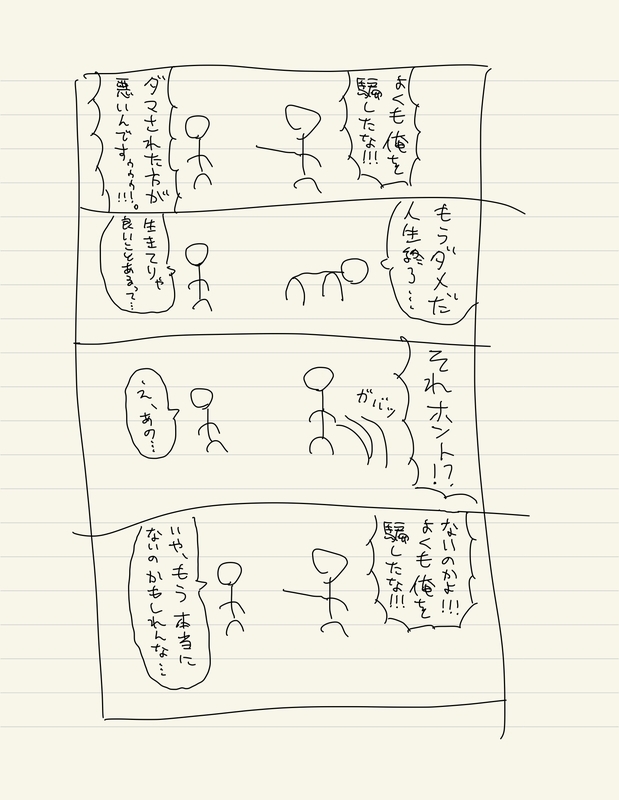 よくも俺を
騙したな!!!
ダマされた方が
悪いんですぅぅぅ!!!。
もうダメだ
人生終了…
生きてりゃ
良いことあるって…
それホント!?
ガバッ
え、あの…
ないのかよ!!!
よくも俺を
騙したな!!!
いや、もう本当に
ないのかもしれんな…